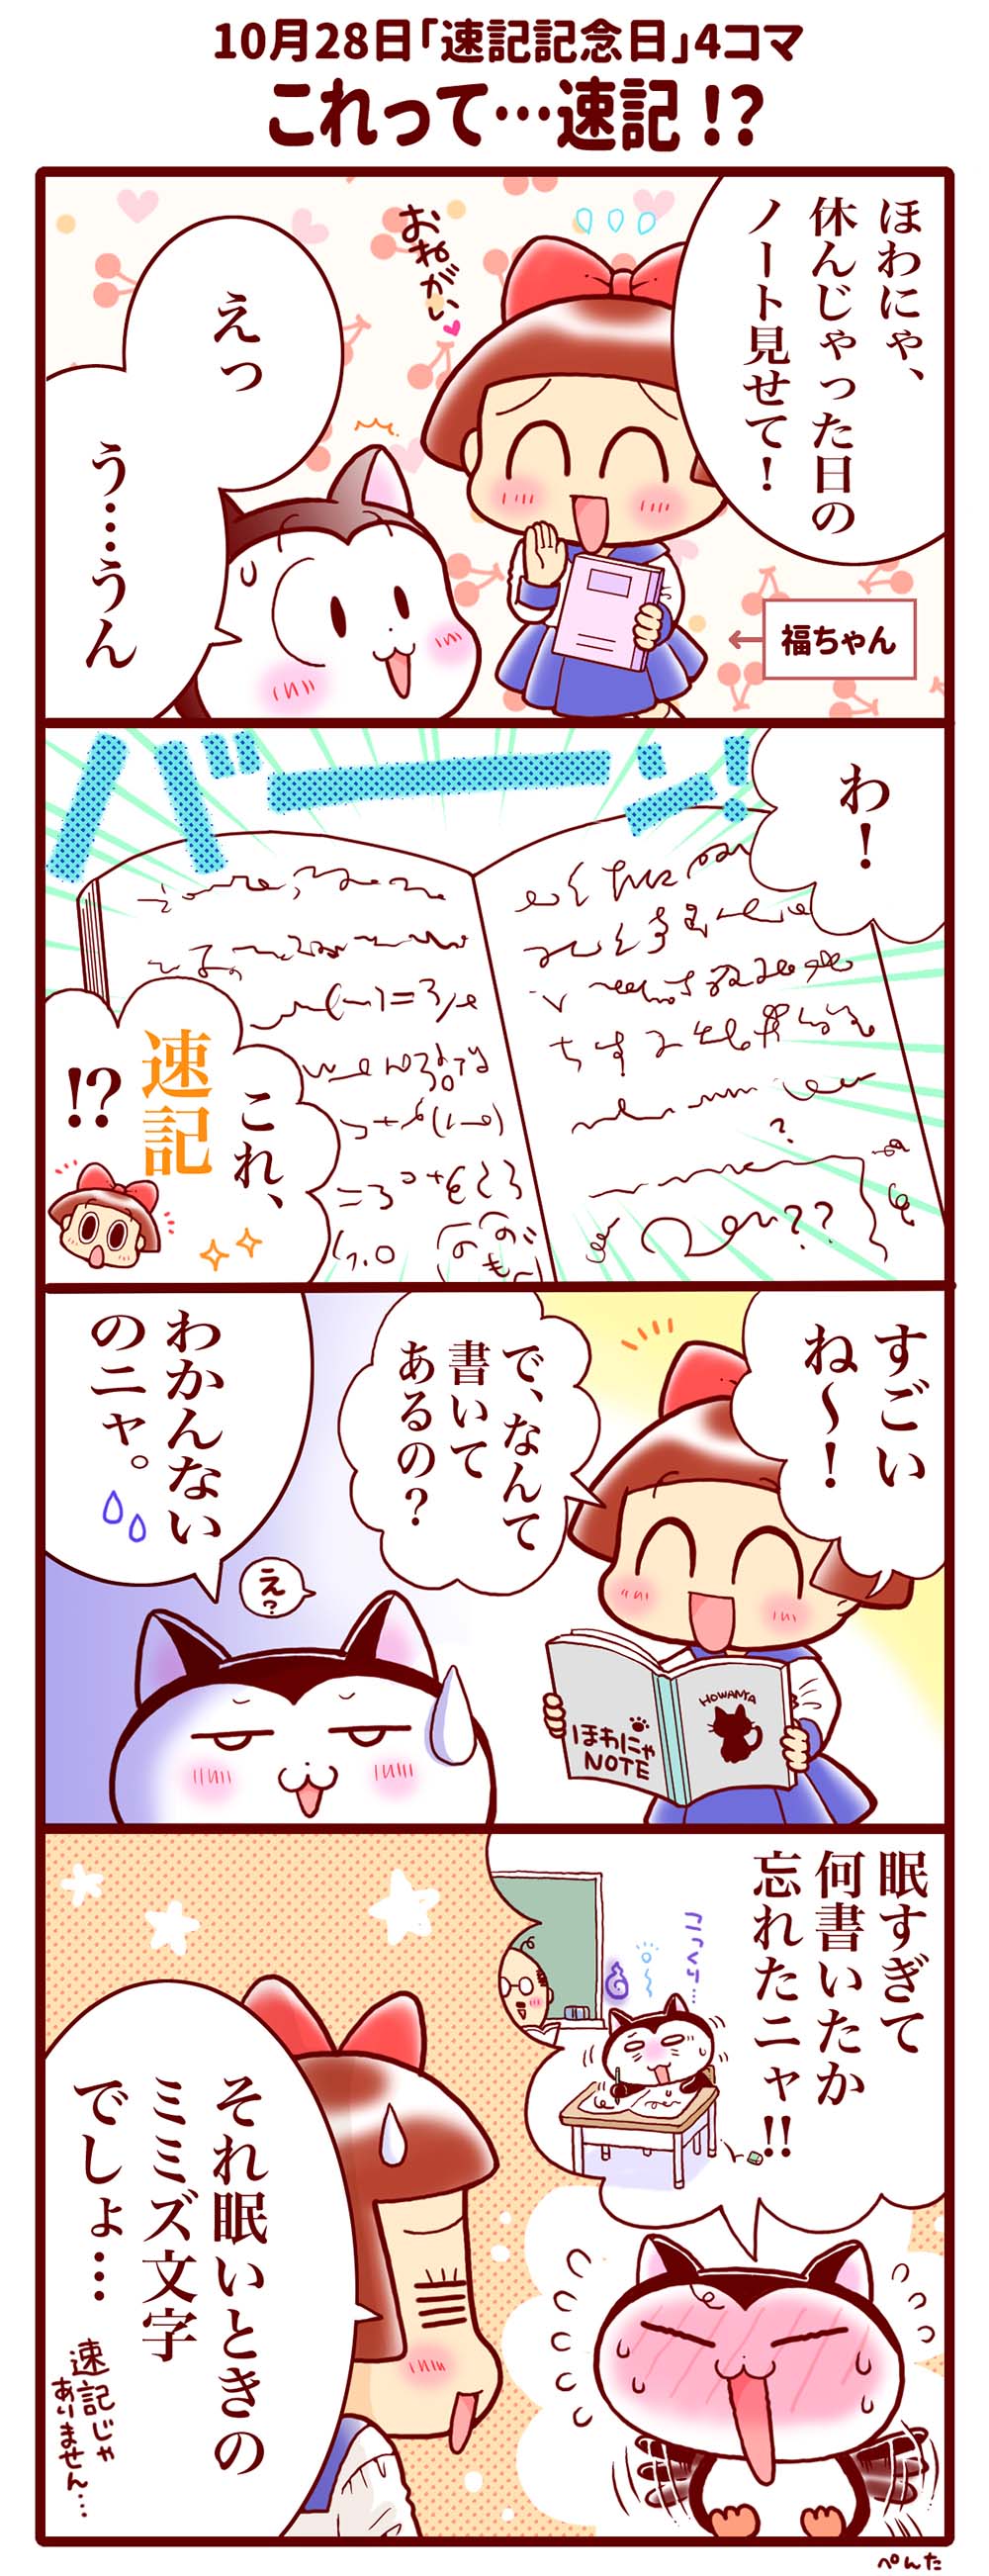 10月28日「速記記念日」4コマ
これって…速記!?
ほわにゃ、
休んじゃった日の
ノート見せて!
おねがい
えっ
う……うん
福ちゃん
わ!
バーーン!!
これ、
速記
!?
すごい
ね〜!
で、なんて
書いて
あるの?
え?
わかんない
のニャ。
ほわにゃ
NOTE
HOWANYA
眠すぎて
何書いたか
忘れたニャ!!
こっくり…
それ眠いときの
ミミズ文字
でしょ…
速記じゃ
ありません…
ぺんた